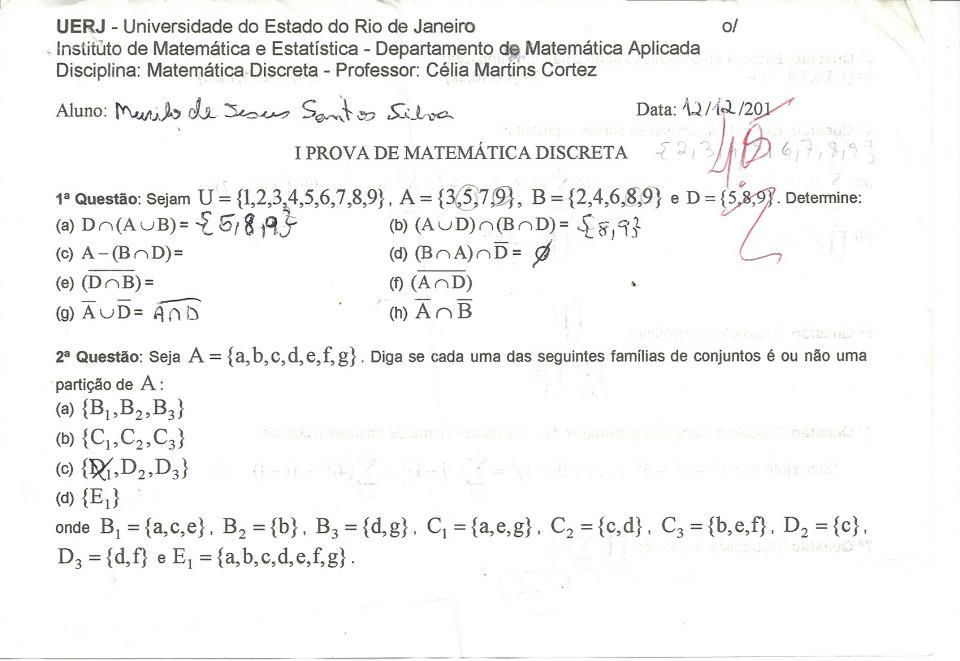 UERJ - Universidade do Estado do Rio de Janeiro o/
Instituto de Matemática e Estatística - Departamento de Matemática Aplicada
Disciplina: Matemática Discreta - Professor: Célia Martins Cortez
Aluno: Murilo de Jesus Santos Silva Data: 12/12/201
I PROVA DE MATEMÁTICA DISCRETA
1ª Questão: Sejam U = {1,2,3,4,5,6,7,8,9}, A = {3,5,7,9}, B = {2,4,6,8,9} e D = {5,8,9}. Determine:
(a) D∩(A∪B)= {5,8,9} (b) (A∪D)∩(B∩D)= {8,9}
(c) A−(B∩D)= (d) (B∩A)∩D̅ = ∅
(e) (D̅∩B̅)= (f) (A̅∩D̅)
(g) A̅∪D̅= A̅∩D̅ (h) A̅∩B̅
2ª Questão: Seja A = {a,b,c,d,e,f,g}. Diga se cada uma das seguintes famílias de conjuntos é ou não uma
partição de A:
(a) {B₁,B₂,B₃}
(b) {C₁,C₂,C₃}
(c) {D₁,D₂,D₃}
(d) {E₁}
onde B₁ = {a,c,e}, B₂ = {b}, B₃ = {d,g}, C₁ = {a,e,g}, C₂ = {c,d}, C₃ = {b,e,f}, D₂ = {c},
D₃ = {d,f} e E₁ = {a,b,c,d,e,f,g}.